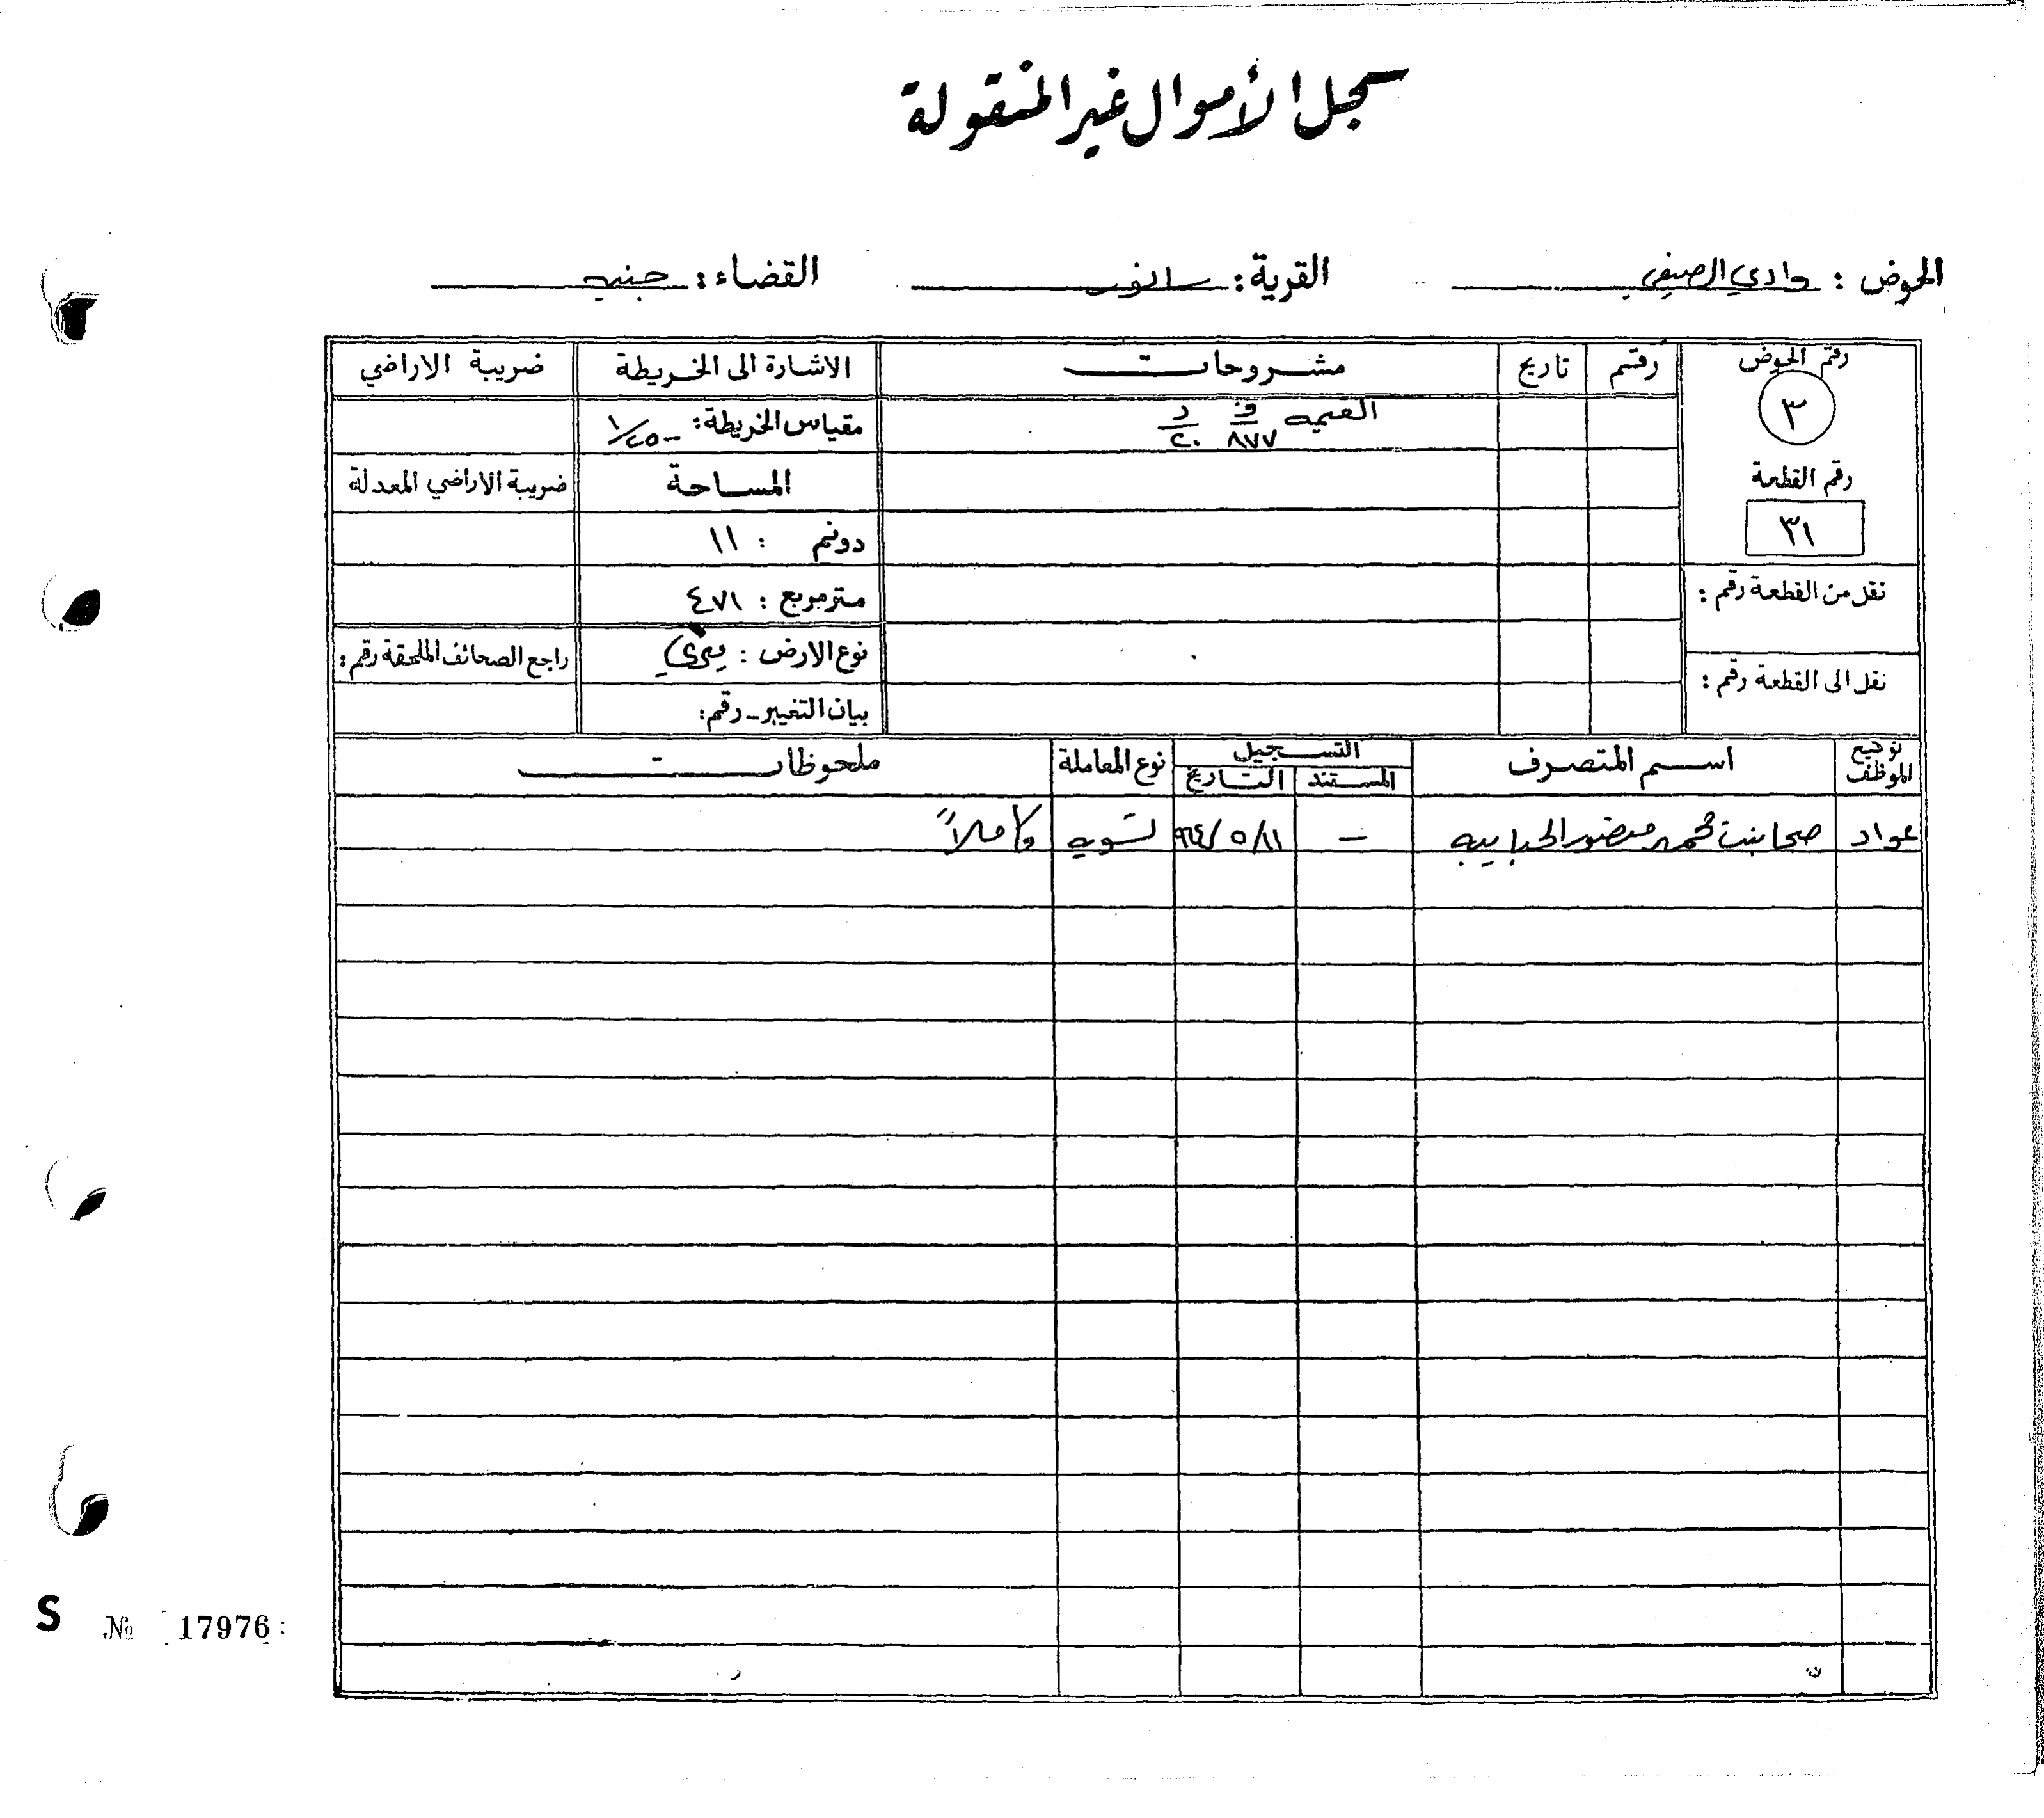 سجل الأموال غير المنقولة
الحوض : وادي الصيفي القرية : سانور القضاء : جنين
رقم الحوض رقم تاريخ مشروحات الاشارة الى الخريطة ضريبة الاراضي
٣ القيمه ف ٨٧٧ د ٢٠ مقياس الخريطة : ١/٢٥٠٠
رقم القطعة المساحة ضريبة الاراضي المعدلة
٣١ دونم : ١١
نقل من القطعة رقم : متر مربع : ٤٧١
نوع الارض : ميري راجع الصحائف الملحقة رقم :
نقل الى القطعة رقم : بيان التغيير - رقم :
توقيع الموظف اسم المتصرف التسجيل نوع المعاملة ملحوظات
المستند التاريخ
عواد بنت محمد منصور الحبايبه - ١١/٥/٩٦٤ تسويه كاملاً
S № 17976